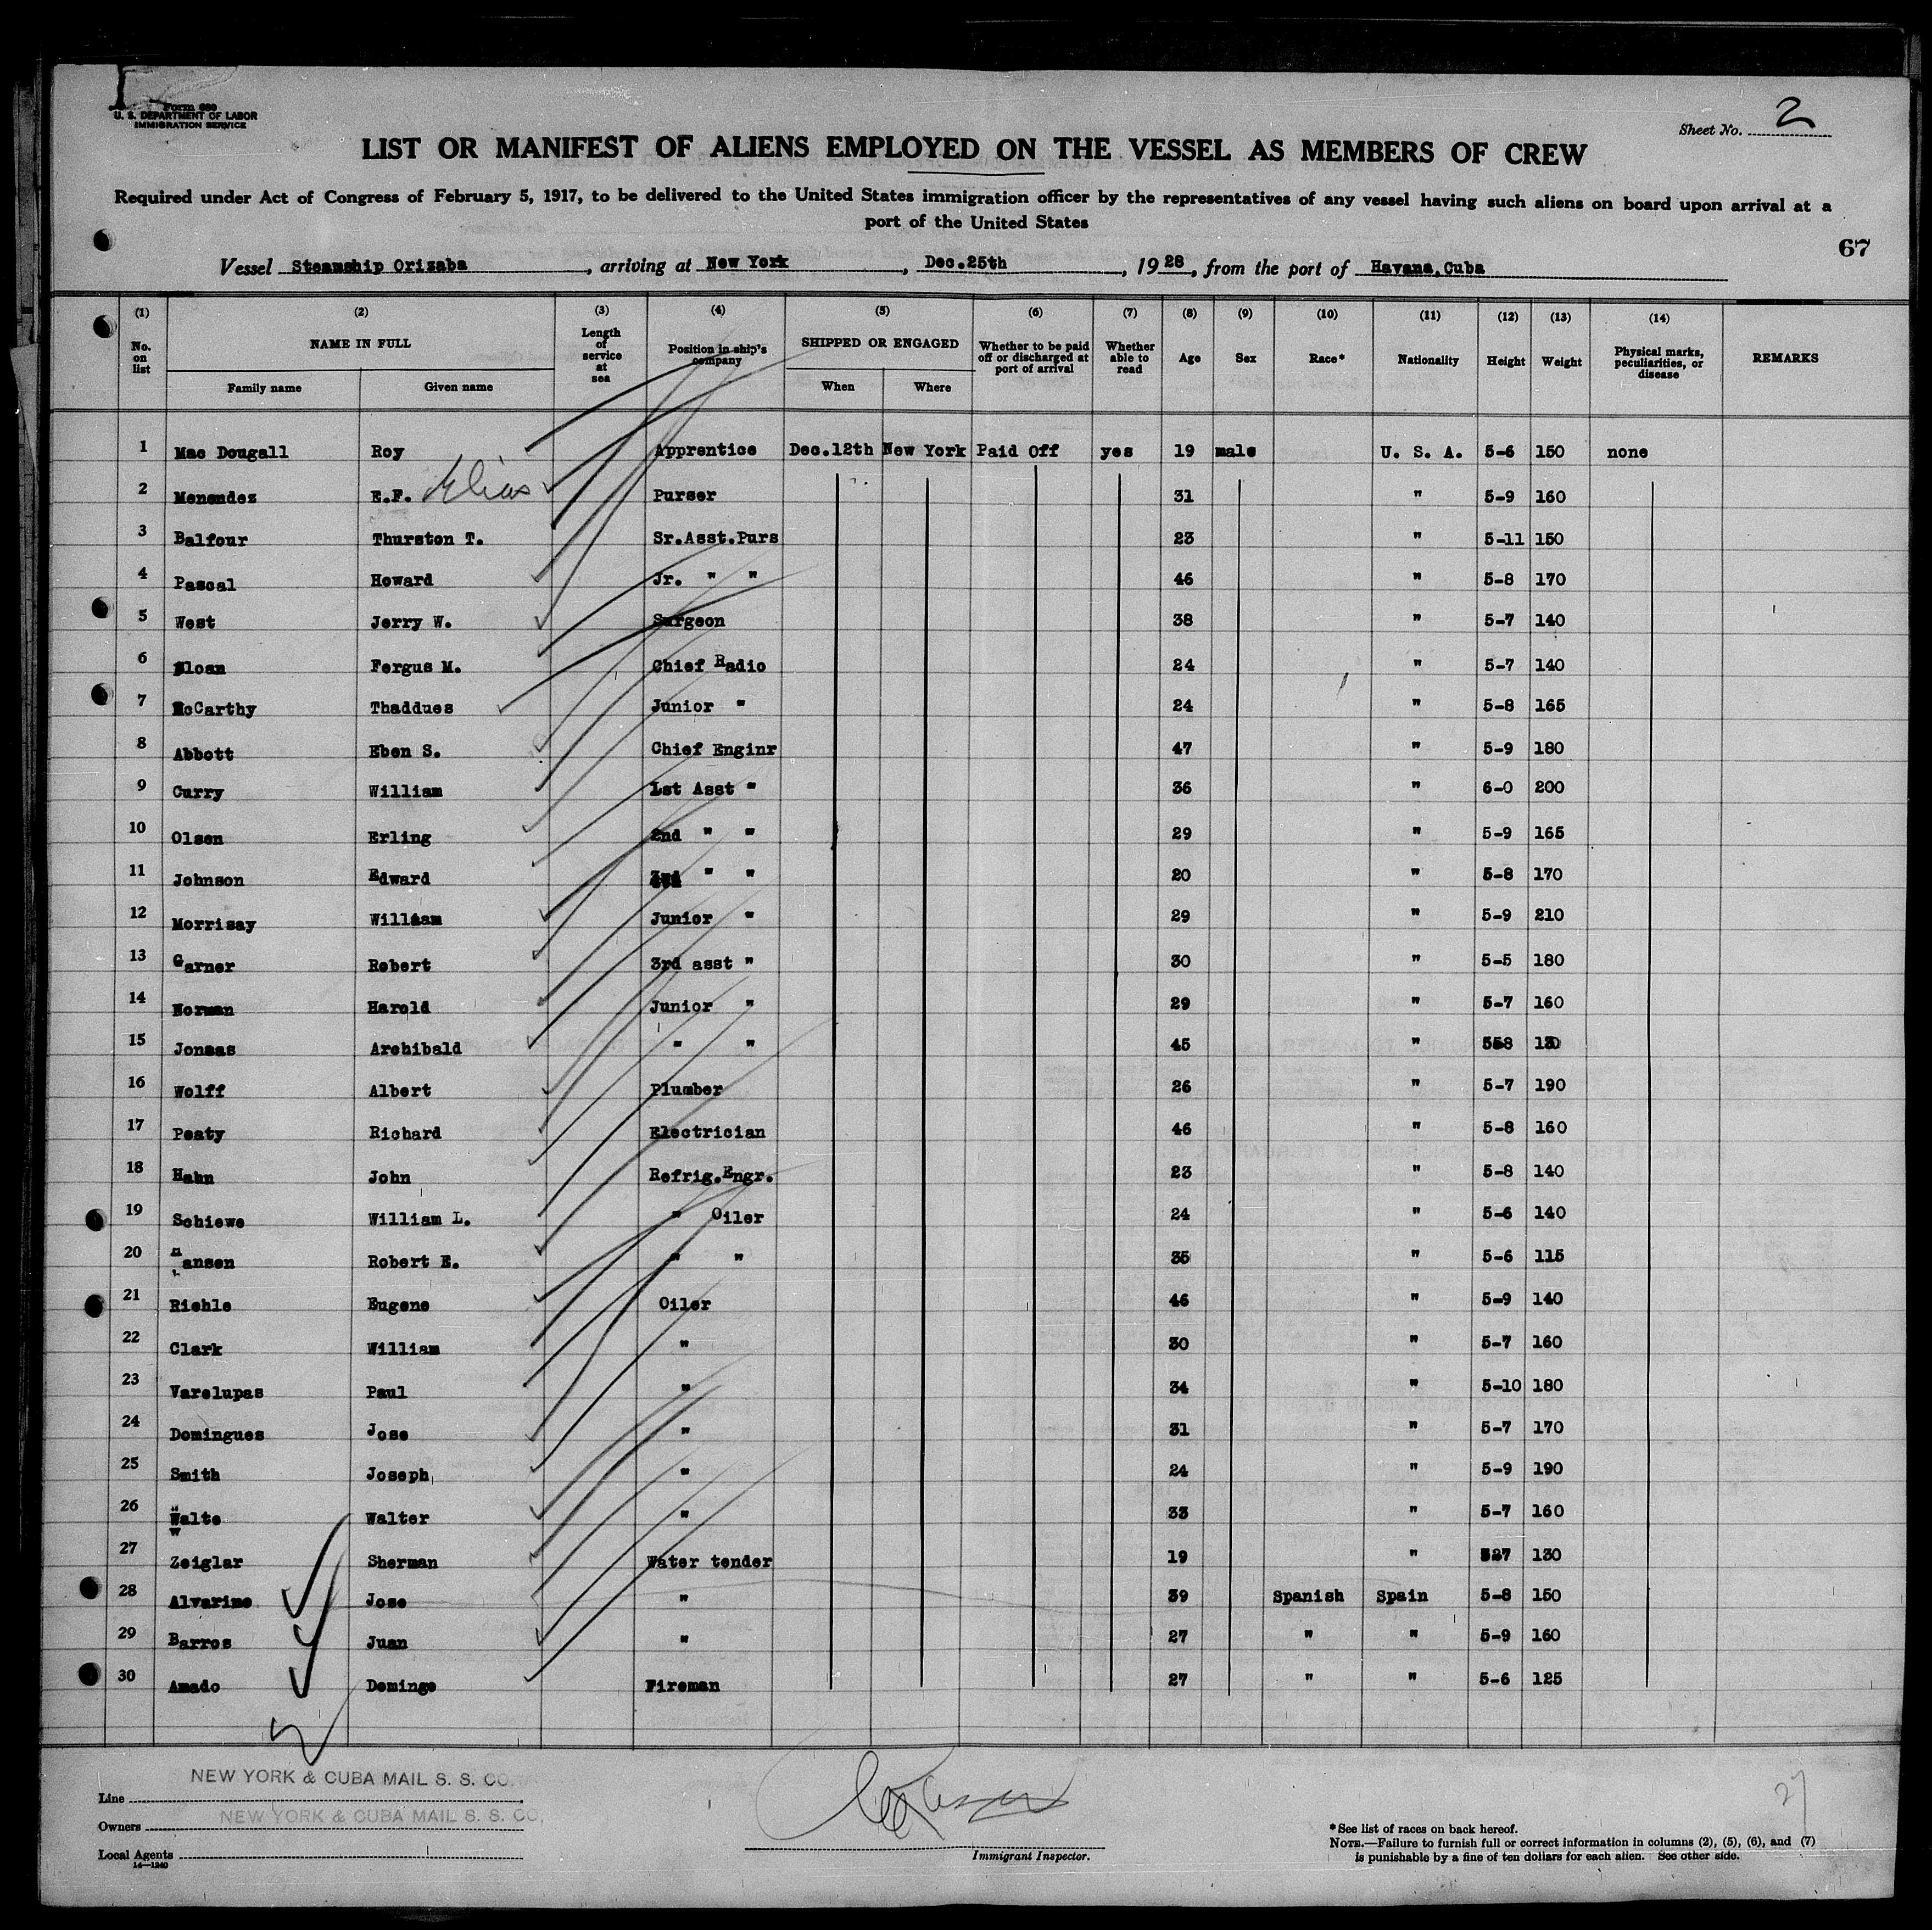 Form 680
U. S. DEPARTMENT OF LABOR
IMMIGRATION SERVICE
Sheet No. 2
LIST OR MANIFEST OF ALIENS EMPLOYED ON THE VESSEL AS MEMBERS OF CREW
Required under Act of Congress of February 5, 1917, to be delivered to the United States immigration officer by the representatives of any vessel having such aliens on board upon arrival at a
port of the United States
67
Vessel Steamship Orizaba, arriving at New York, Dec.25th, 1928, from the port of Havana,Cuba
(1) (2) (3) (4) (5) (6) (7) (8) (9) (10) (11) (12) (13) (14)
No. on list NAME IN FULL Family name Given name Length of service at sea Position in ship's company SHIPPED OR ENGAGED When Where Whether to be paid off or discharged at port of arrival Whether able to read Age Sex Race* Nationality Height Weight Physical marks, peculiarities, or disease REMARKS
1 Mac Dougall Roy Apprentice Dec.12th New York Paid Off yes 19 male U. S. A. 5-6 150 none
2 Menendez E.F. Elias Purser 31 " 5-9 160
3 Balfour Thurston T. Sr.Asst.Purs 23 " 5-11 150
4 Pascal Howard Jr. " " 46 " 5-8 170
5 West Jerry W. Surgeon 38 " 5-7 140
6 Sloan Fergus M. Chief Radio 24 " 5-7 140
7 McCarthy Thaddues Junior " 24 " 5-8 165
8 Abbott Eben S. Chief Enginr 47 " 5-9 180
9 Curry William 1st Asst " 36 " 6-0 200
10 Olsen Erling 2nd " " 29 " 5-9 165
11 Johnson Edward " " 20 " 5-8 170
12 Morrisay William Junior " 29 " 5-9 210
13 Garner Robert 3rd asst " 30 " 5-5 180
14 Norman Harold Junior " 29 " 5-7 160
15 Jonsas Archibald " " 45 "
16 Wolff Albert Plumber 26 " 5-7 190
17 Peaty Richard Electrician 46 " 5-8 160
18 Hahn John Refrig.Engr. 23 " 5-8 140
19 Schiewe William L. " Oiler 24 " 5-6 140
20 Hansen Robert E. " " 35 " 5-6 115
21 Riehle Eugene Oiler 46 " 5-9 140
22 Clark William " 30 " 5-7 160
23 Varelupas Paul " 34 " 5-10 180
24 Domingues Jose " 31 " 5-7 170
25 Smith Joseph " 24 " 5-9 190
26 Walte Walter " 33 " 5-7 160
27 Zeiglar Sherman Water tender 19 " 130
28 Alvarino Jose " 39 Spanish Spain 5-8 150
29 Barros Juan " 27 " " 5-9 160
30 Amado Domingo Fireman 27 " " 5-6 125
NEW YORK & CUBA MAIL S. S. CO.
Line
NEW YORK & CUBA MAIL S. S. CO.
Owners
Local Agents
14—1240
Immigrant Inspector.
27
*See list of races on back hereof.
NOTE.—Failure to furnish full or correct information in columns (2), (5), (6), and (7)
is punishable by a fine of ten dollars for each alien. See other side.